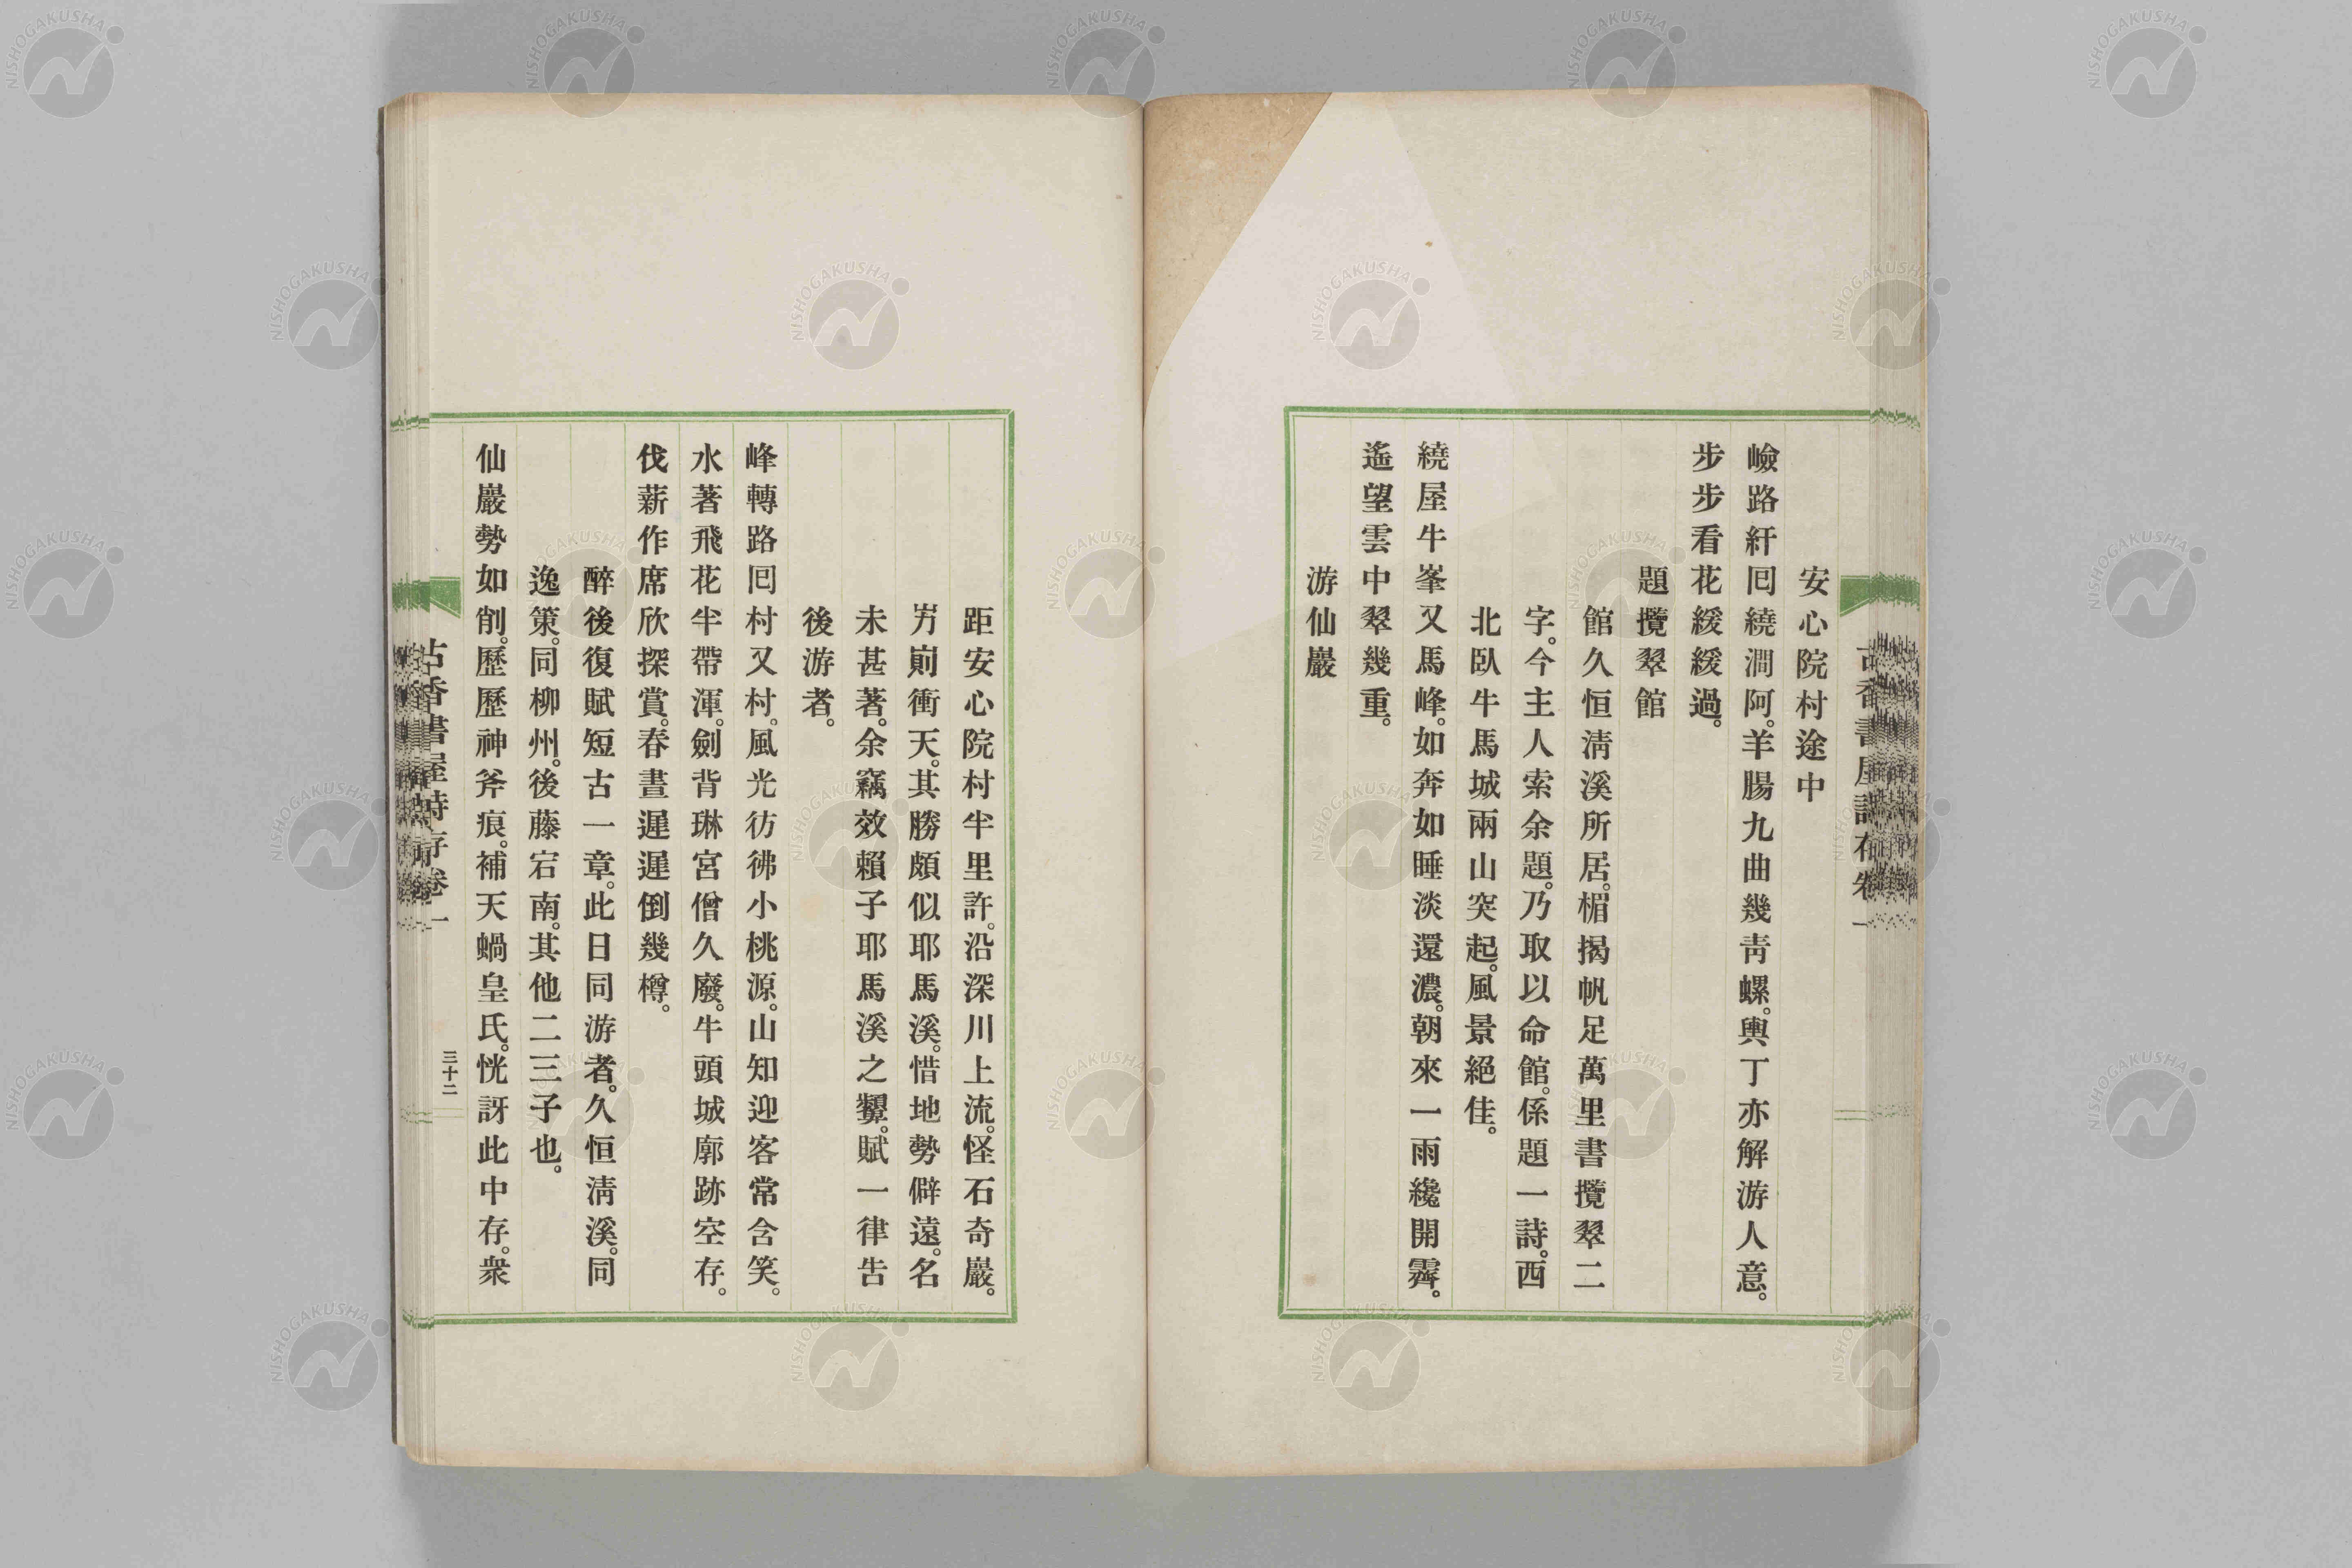 安心院村途中
嶮路紆囘繞澗阿。羊腸九曲幾靑螺。輿丁亦解游人意。
步步看花緩緩過。
題攬翠館
館久恒淸溪所居。楣揭帆足萬里書攬翠二
字。今主人索余題。乃取以命館。係題一詩。西
北臥牛馬城兩山突起。風景絕佳。
繞屋牛峯又馬峰。如奔如睡淡還濃。朝來一雨纔開霽。
遙望雲中翠幾重。
游仙巖
距安心院村半里許。沿深川上流。怪石奇巖。
屴崱衝天。其勝頗似耶馬溪。惜地勢僻遠。名
未甚著。余竊效賴子耶馬溪之顰。賦一律告
後游者。
峰轉路囘村又村。風光彷彿小桃源。山知迎客常含笑。
水著飛花半帶渾。劍背琳宮僧久廢。牛頭城廓跡空存。
伐薪作席欣探賞。春晝遲遲倒幾樽。
醉後復賦短古一章。此日同游者。久恒淸溪。同
逸策。同柳州。後藤宕南。其他二三子也。
仙巖勢如削。歷歷神斧痕。補天蝸皇氏。恍訝此中存。衆
古香書屋詩存卷一
三十二
NISHOGAKUSHA